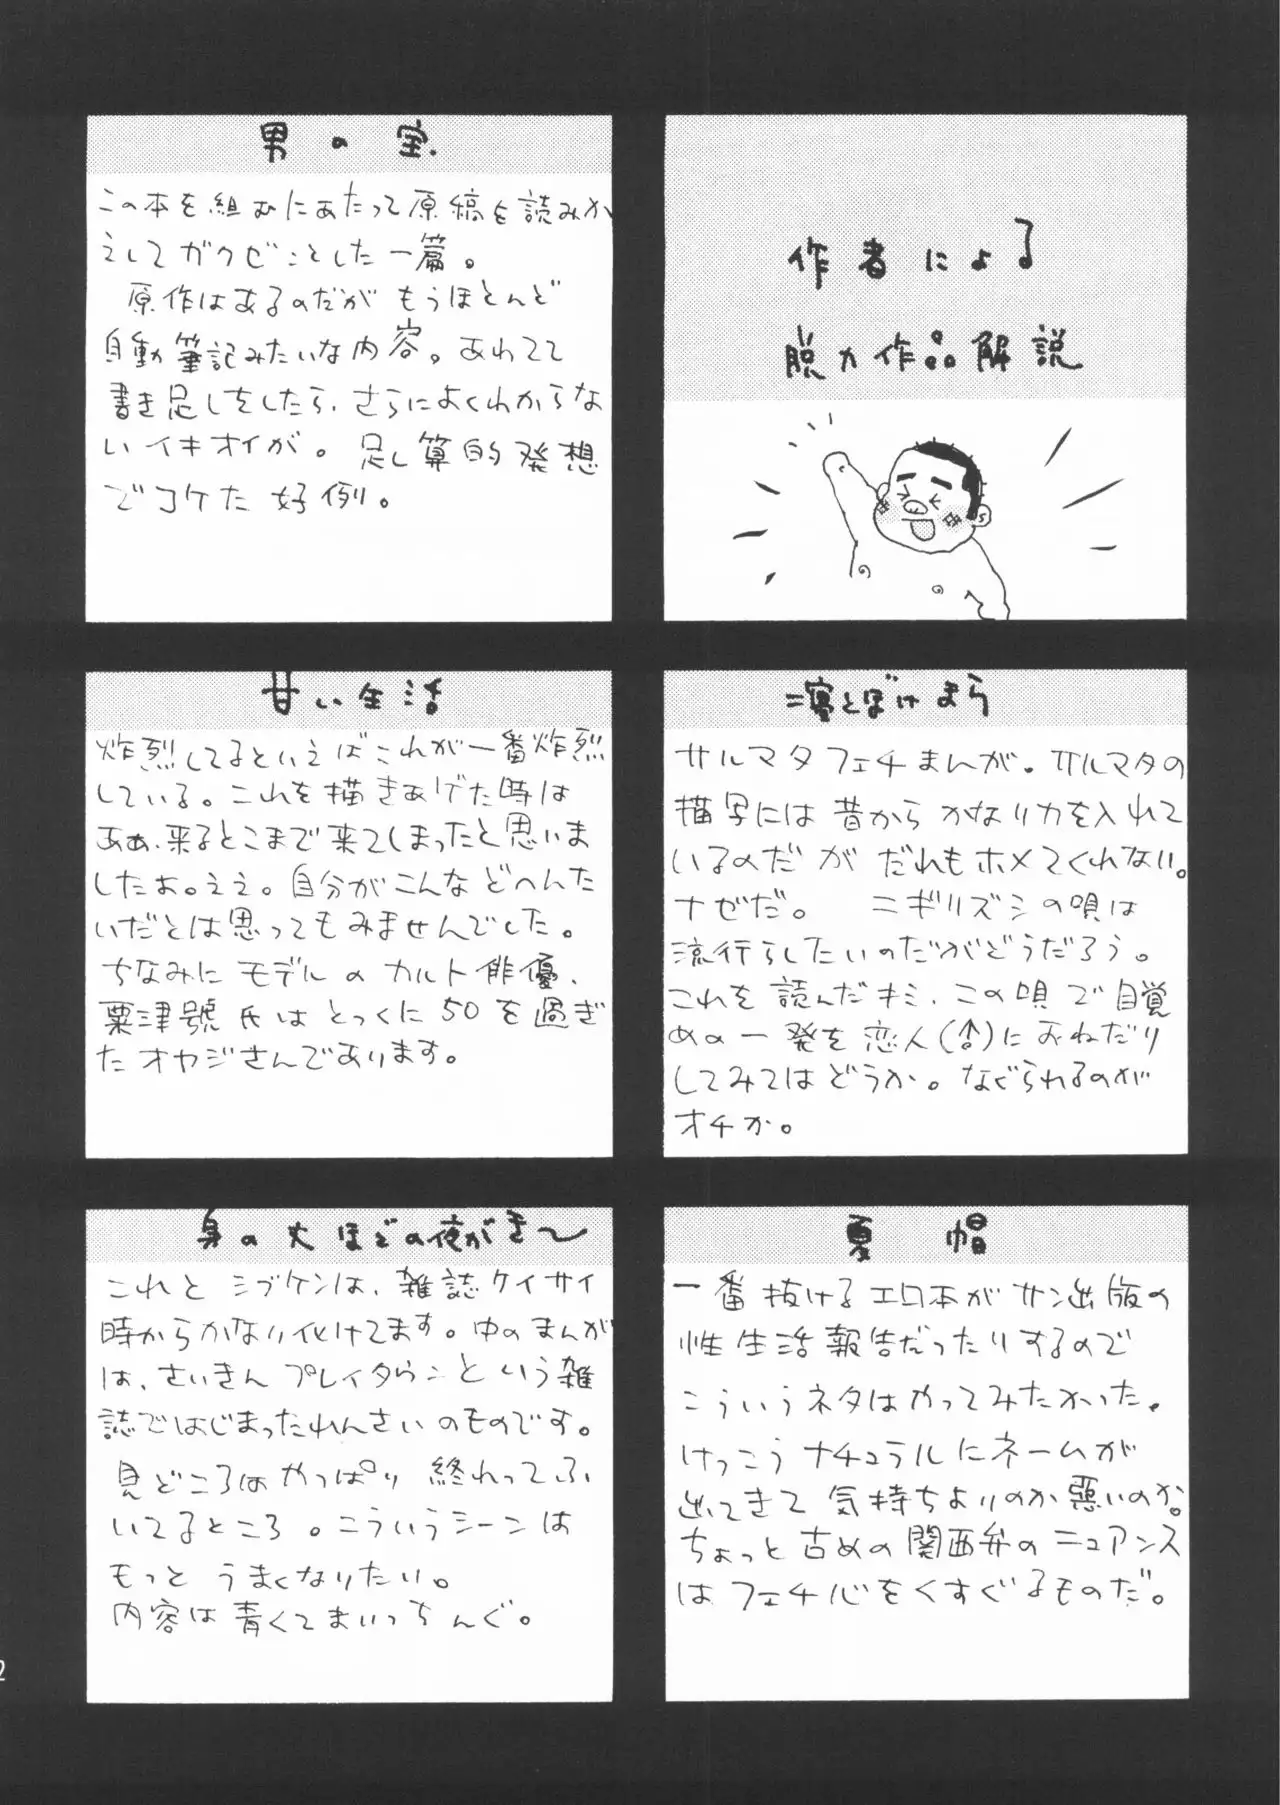 作者による
脱力作品解説
男の宝.
この本を組むにあたって原稿を読みか
えしてガクゼンとした一篇。
原作はあるのだが もうほとんど
自動筆記みたいな内容。あわてて
書き足しをしたら、さらによくわからな
いイキオイが。足し算的発想
でコケた好例。
寝とぼけまら
サルマタフェチまんが。サルマタの
描写には昔から かなり力を入れて
いるのだが だれもホメてくれない。
ナゼだ。 ニギリズシの唄は
流行らしたいのだがどうだろう。
これを読んだキミ、この唄で目覚
めの一発を恋人(♂)におねだり
してみてはどうか。なぐられるのが
オチか。
甘い生活
炸烈してるといえばこれが一番炸烈
している。これを描きあげた時は
ああ、来るとこまで来てしまったと思いま
したよ。ええ。自分がこんなどへんた
いだとは思ってもみませんでした。
ちなみに モデルの カルト俳優、
粟津號氏は とっくに50を過ぎ
たオヤジさんであります。
夏帽
一番抜けるエロ本がサン出版の
性生活報告だったりするので
こういうネタはやってみたかった。
けっこうナチュラルにネームが
出てきて 気持ちよいのか悪いのか。
ちょっと古めの関西弁のニュアンス
はフェチ心をくすぐるものだ。
身の丈ほどの夜がき〜
これと シブケンは、雑誌ケイサイ
時からかなり化けてます。中のまんが
は、さいきん プレイタウンという雑
誌ではじまったれんさいのものです。
見どころはやっぱり 終わってふ
いてるところ。こういうシーンは
もっと うまくなりたい。
内容は青くてまいっちんぐ。
2